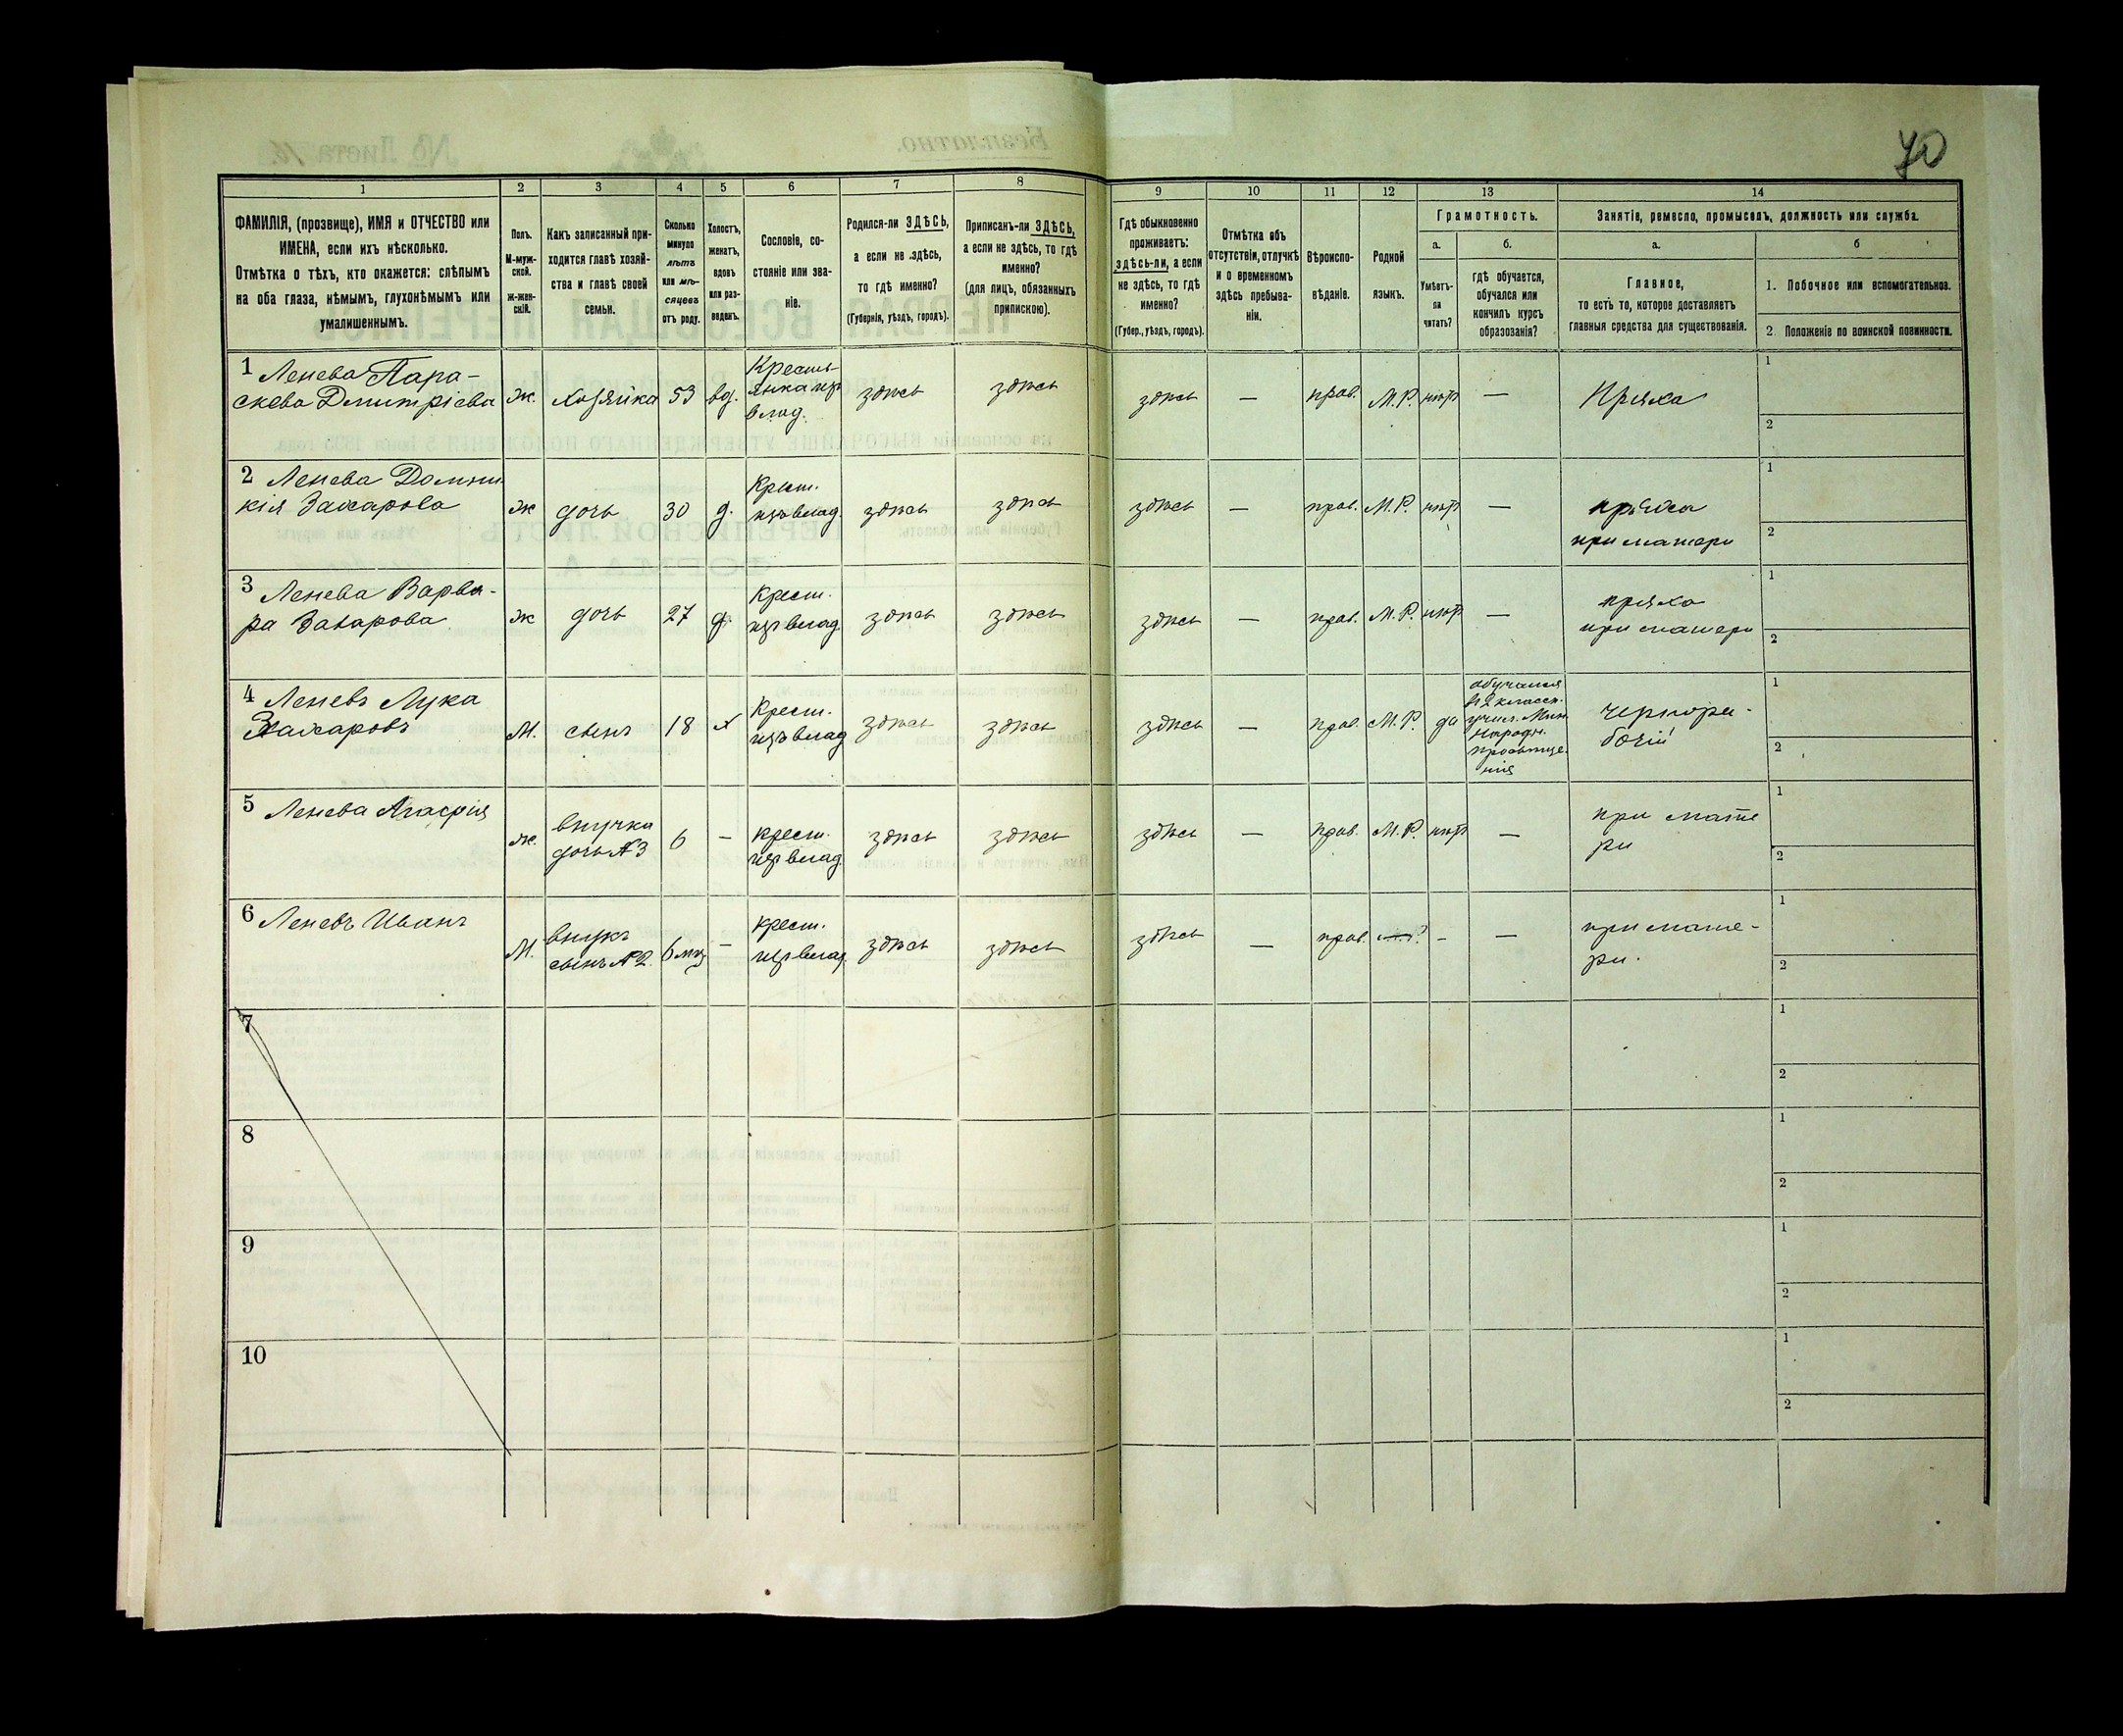 70
1 2 3 4 5 6 7 8 9 10 11 12 13 14
ФАМИЛІЯ, (прозвище), ИМЯ и ОТЧЕСТВО или
ИМЕНА, если ихъ нѣсколько.
Отмѣтка о тѣхъ, кто окажется: слѣпымъ
на оба глаза, нѣмымъ, глухонѣмымъ или
умалишеннымъ.
Полъ.
М-муж-
ской.
ж-жен-
скій.
Какъ записанный при-
ходится главѣ хозяй-
ства и главѣ своей
семьи.
Сколько
минуло
лѣтъ
или мѣ-
сяцевъ
отъ роду.
Холостъ,
женатъ,
вдовъ
или раз-
веденъ.
Сословіе, со-
стояніе или зва-
ніе.
Родился-ли ЗДѢСЬ,
а если не здѣсь,
то гдѣ именно?
(Губернія, уѣздъ, городъ).
Приписанъ-ли ЗДѢСЬ,
а если не здѣсь, то гдѣ
именно?
(для лицъ, обязанныхъ
припискою).
Гдѣ обыкновенно
проживаетъ:
здѣсь-ли, а если
не здѣсь, то гдѣ
именно?
(Губер., уѣздъ, городъ).
Отмѣтка объ
отсутствіи, отлучкѣ
и о временномъ
здѣсь пребыва-
ніи.
Вѣроиспо-
вѣданіе.
Родной
языкъ.
Грамотность.
а.
Умѣетъ-
ли
читать?
б.
гдѣ обучается,
обучался или
кончилъ курсъ
образованія?
Занятіе, ремесло, промыселъ, должность или служба.
а.
Главное,
то есть то, которое доставляетъ
главныя средства для существованія.
б
1. Побочное или вспомогательное.
2. Положеніе по воинской повинности.
1 Ленева Пара-
скева Дмитріева
ж. хозяйка 53 вд.
Кресть-
янка изъ
влад.
здѣсь здѣсь здѣсь — прав. М.Р. нѣтъ — Пряха
1
2
2 Ленева Домни
кія Захарова
ж дочь 30 д.
Крест.
изъ влад.
здѣсь здѣсь здѣсь — прав. М.Р. нѣтъ —
пряха
при матери
1
2
3 Ленева Варва-
ра Захарова
ж дочь 27 д.
Крест.
изъ влад.
здѣсь здѣсь здѣсь — прав. М.Р. нѣтъ —
пряха
при матери
1
2
4 Леневъ Лука
Захаровъ
М. сынъ 18 х
Крест.
изъ влад
здѣсь здѣсь здѣсь — прав. М.Р. да
обучался
въ 2 классн.
учил. Мин.
народн.
просвѣще-
нія
чернора-
бочій
1
2
5 Ленева Агафія
ж.
внучка
дочь № 3
6 —
крест.
изъ влад.
здѣсь здѣсь здѣсь — прав. М.Р. нѣтъ —
при мате
ри
1
2
6 Леневъ Иванъ
М.
внукъ
сынъ № 2.
6 мѣс —
крест.
изъ влад.
здѣсь здѣсь здѣсь — прав. М.Р. - —
при мате-
ри.
1
2
7
1
2
8
1
2
9
1
2
10
1
2